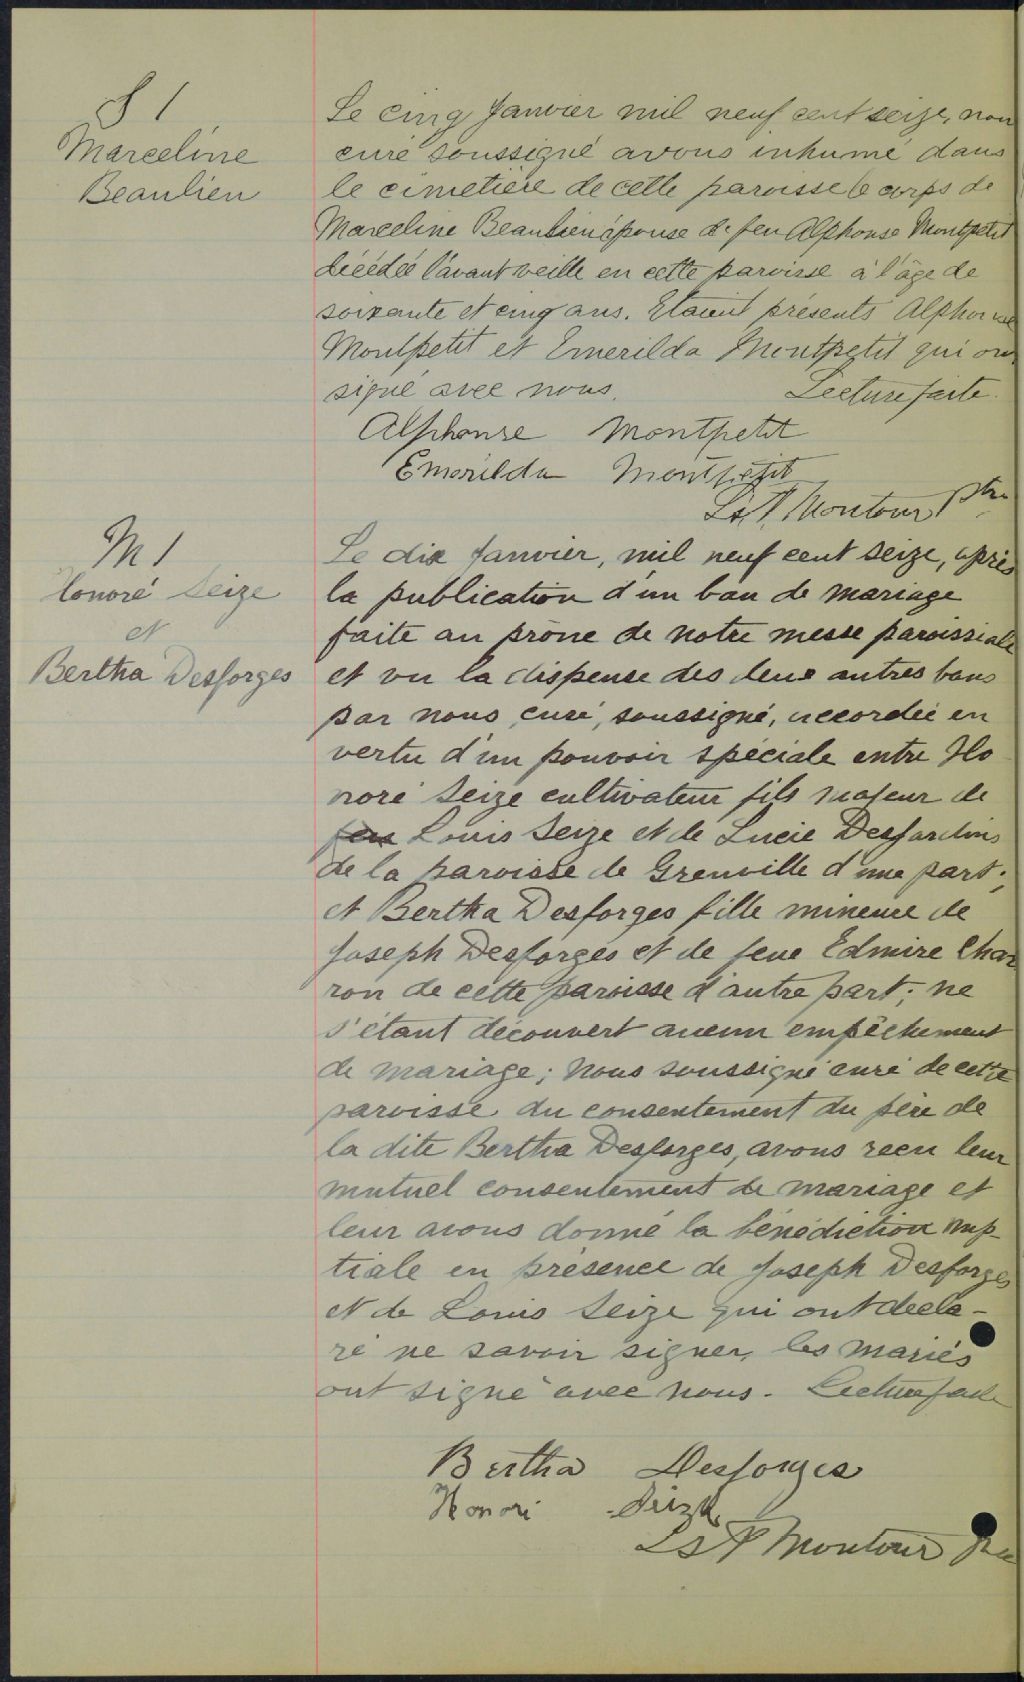 S 1
Marceline
Beaulieu
Le cinq Janvier mil neuf cent seize, nou
curé soussigné avons inhumé dans
le cimetière de cette paroisse le corps de
Marceline Beaulieu épouse de feu Alphonse Montpetit
décédée l'avant veille en cette paroisse à l'âge de
soixante et cinq ans. Etaient présents Alphonse
Montpetit et Emerilda Montpetit qui on
signé avec nous. Lecture faite.
Alphonse Montpetit
Emerilda Montpetit
Ls P. Montour Ptre
M 1
Honoré Seize
et
Bertha Desforges
Le dix Janvier, mil neuf cent seize, après
la publication d'un ban de mariage
faite au prône de notre messe paroissiale
et vu la dispense des deux autres bans
par nous curé, soussigné, accordée en
vertu d'un pouvoir spéciale entre Ho
noré Seize cultivateur fils majeur de
feu Louis Seize et de Lucie Desjardins
de la paroisse de Grenville d'une part;
et Bertha Desforges fille mineure de
Joseph Desforges et de feue Edmire Char
ron de cette paroisse d'autre part; ne
s'étant découvert aucun empêchement
de mariage; Nous soussigné curé de cette
paroisse du consentement du père de
la dite Bertha Desforges, avons recu leur
mutuel consentement de mariage et
leur avons donné la bénédiction nup-
tiale en présence de Joseph Desforges
et de Louis Seize qui ont décla-
ré ne savoir signer, les mariés
ont signé avec nous. Lecture faite
Bertha Desforges
Honoré Seize
Ls P Montour Ptre